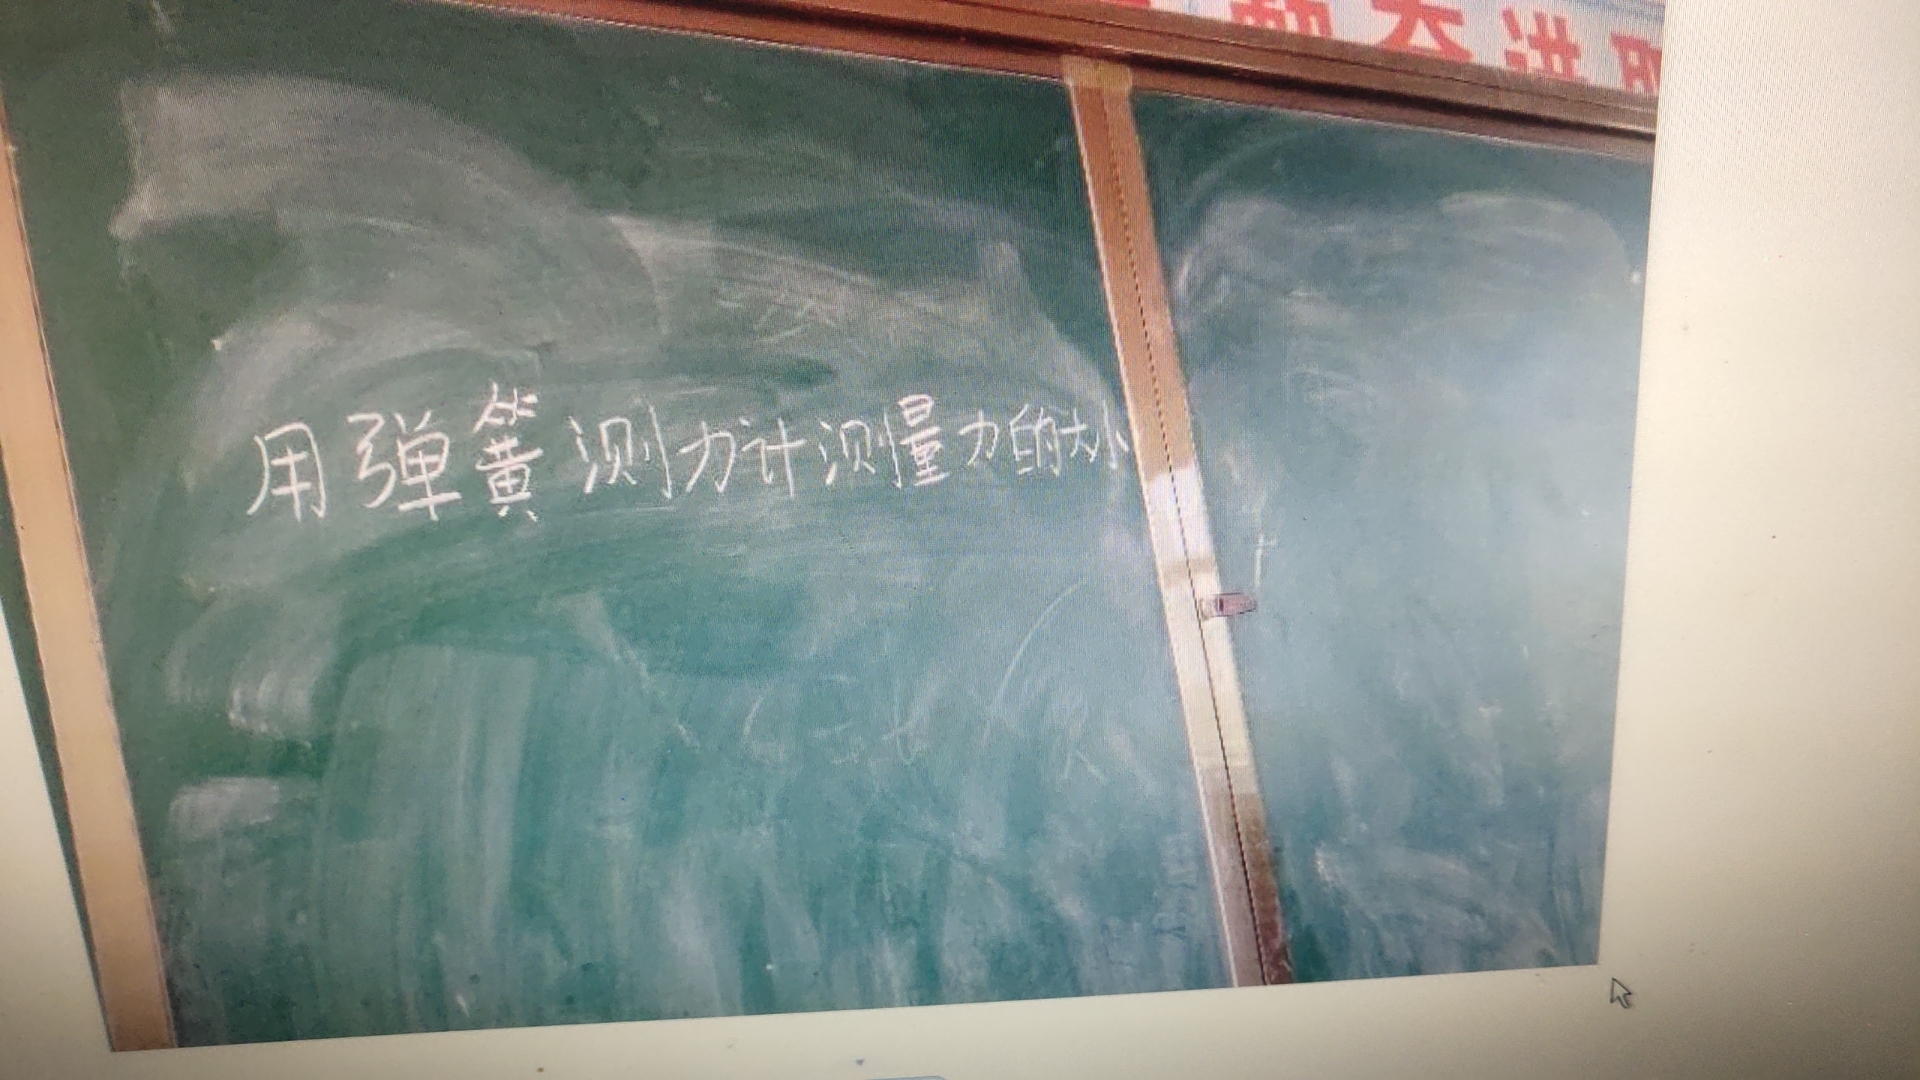 奋进
用弹簧测力计测量力的大小